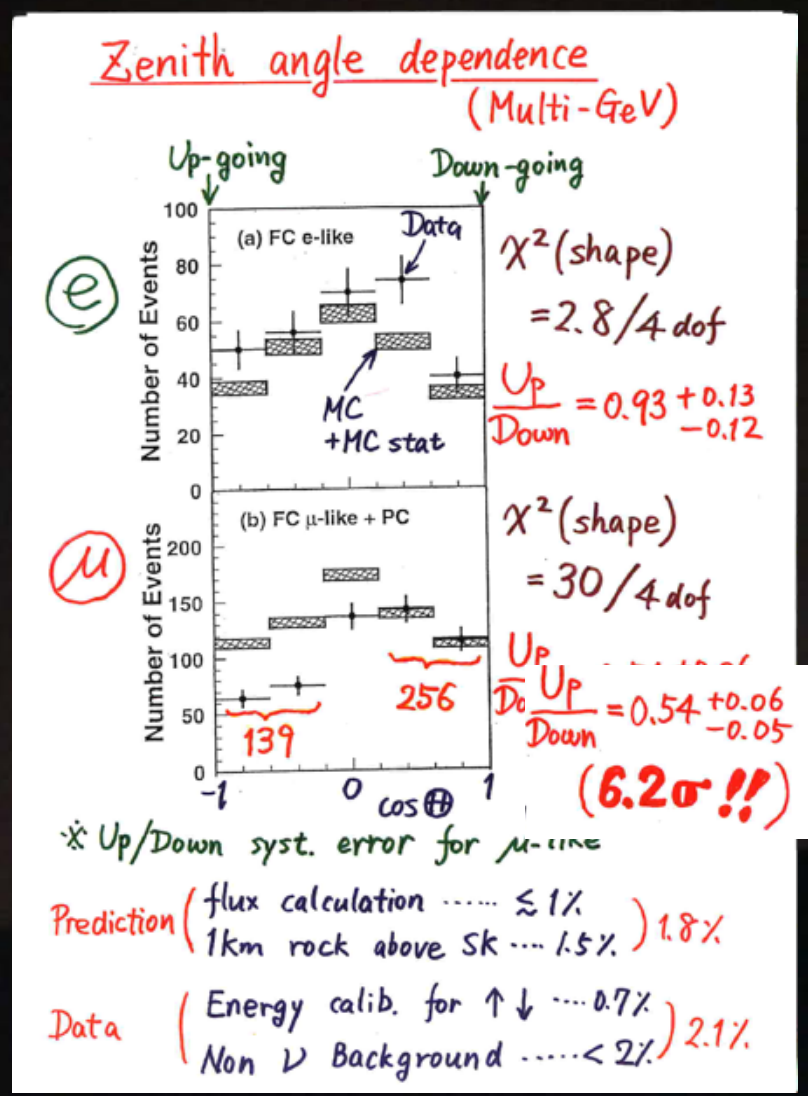 Zenith angle dependence
(Multi-GeV)
Up-going
Down-going
e
Number of Events
100
80
60
40
20
0
(a) FC e-like
Data
MC
+MC stat
χ² (shape)
= 2.8/4 dof
Up/Down = 0.93 +0.13 -0.12
μ
Number of Events
200
150
100
50
0
(b) FC μ-like + PC
139
256
-1 0 1
cos Θ
χ² (shape)
= 30/4 dof
Up
Do
Up/Down = 0.54 +0.06 -0.05
(6.2σ !!)
※ Up/Down syst. error for μ-like
Prediction ( flux calculation ...... ≲ 1%
1km rock above SK .... 1.5% ) 1.8%
Data ( Energy calib. for ↑ ↓ .... 0.7%
Non ν Background ..... < 2% ) 2.1%